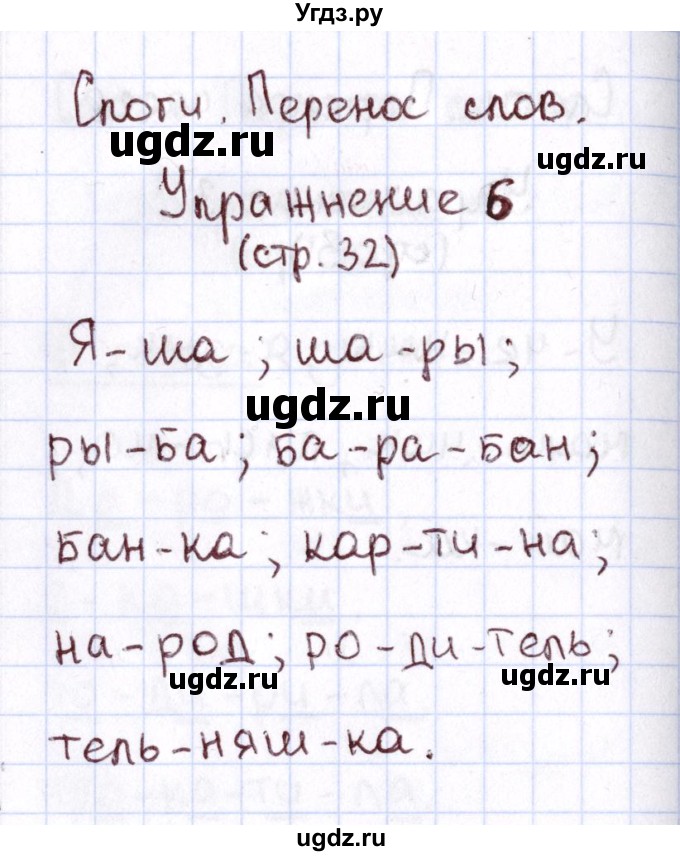 Угдз.ру
Слоги. Перенос слов.
ugdz.ru ugdz.ru
Упражнение 6
(стр. 32)
Я-ша; ша-ры;
ugdz.ru
ры-ба; ба-ра-бан;
бан-ка; кар-ти-на;
на-род; ро-ди-тель;
ugdz.ru ugdz.ru
тель-няш-ка.
ugdz.ru